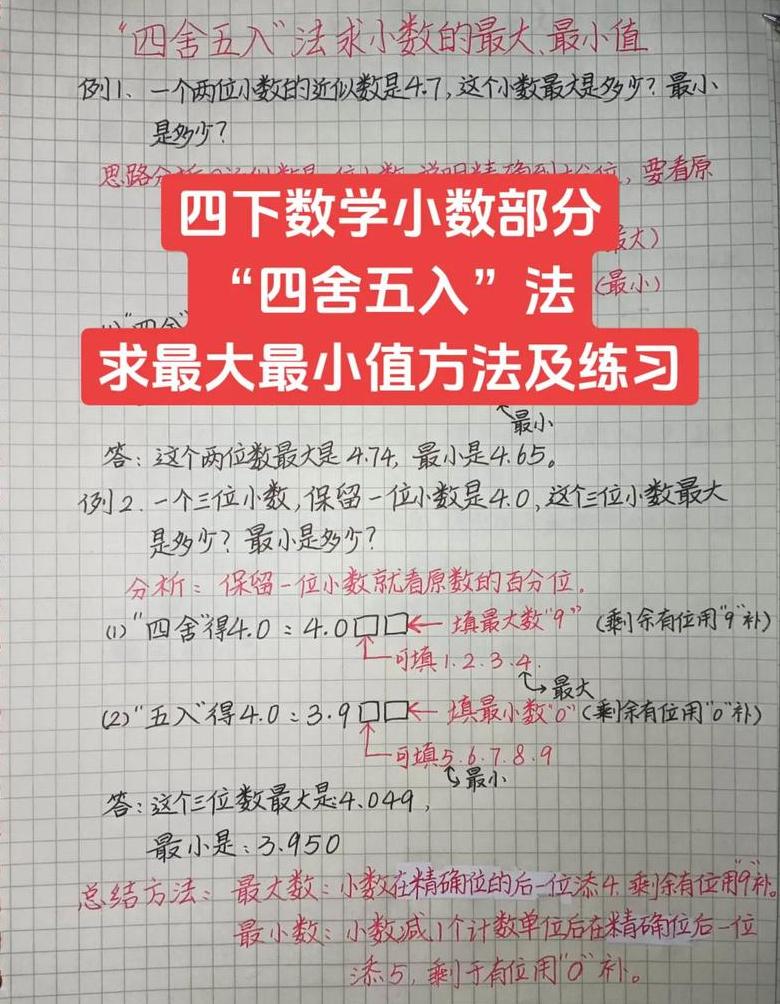 “四舍五入”法求小数的最大、最小值
例1、一个两位小数的近似数是4.7,这个小数最大是多少?最小
是多少?
思路分析 要看原
四下数学小数部分
最大)
“四舍五入”法
(最小)
求最大最小值方法及练习
最小
答:这个两位数最大是4.74,最小是4.65。
例2.一个三位小数,保留一位小数是4.0,这个三位小数最大
是多少?最小是多少?
分析:保留一位小数就看原数的百分位。
(1)“四舍”得4.0:4.0□□←填最大数“9”(剩余有位用“9”补)
可填1.2.3.4.
最大
(2)“五入”得4.0:3.9□□←填最小数“0”(剩余有位用“0”补)
可填5.6.7.8.9
最小
答:这个三位数最大是:4.049,
最小是:3.950
总结方法:最大数:小数在精确位的后一位添4.剩余有位用“9”补。
最小数:小数减1个计数单位后在精确位后一位
添5,剩于有位用“0”补。